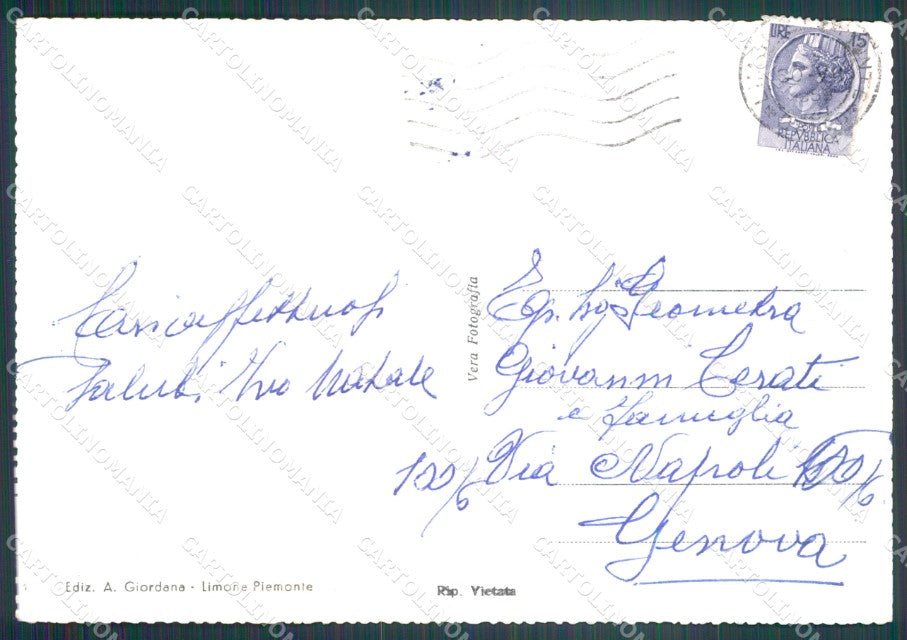 LIRE 15
REPVBBLICA
ITALIANA
Cari affettuosi
Saluti, Ivo Natale
Vera Fotografia
Eg. Sig. Geometra
Giovanni Cerati
e famiglia
120/6 Via Napoli 120/6
Genova
Ediz. A. Giordana - Limone Piemonte
Rip. Vietata
CARTOLINOMANIA